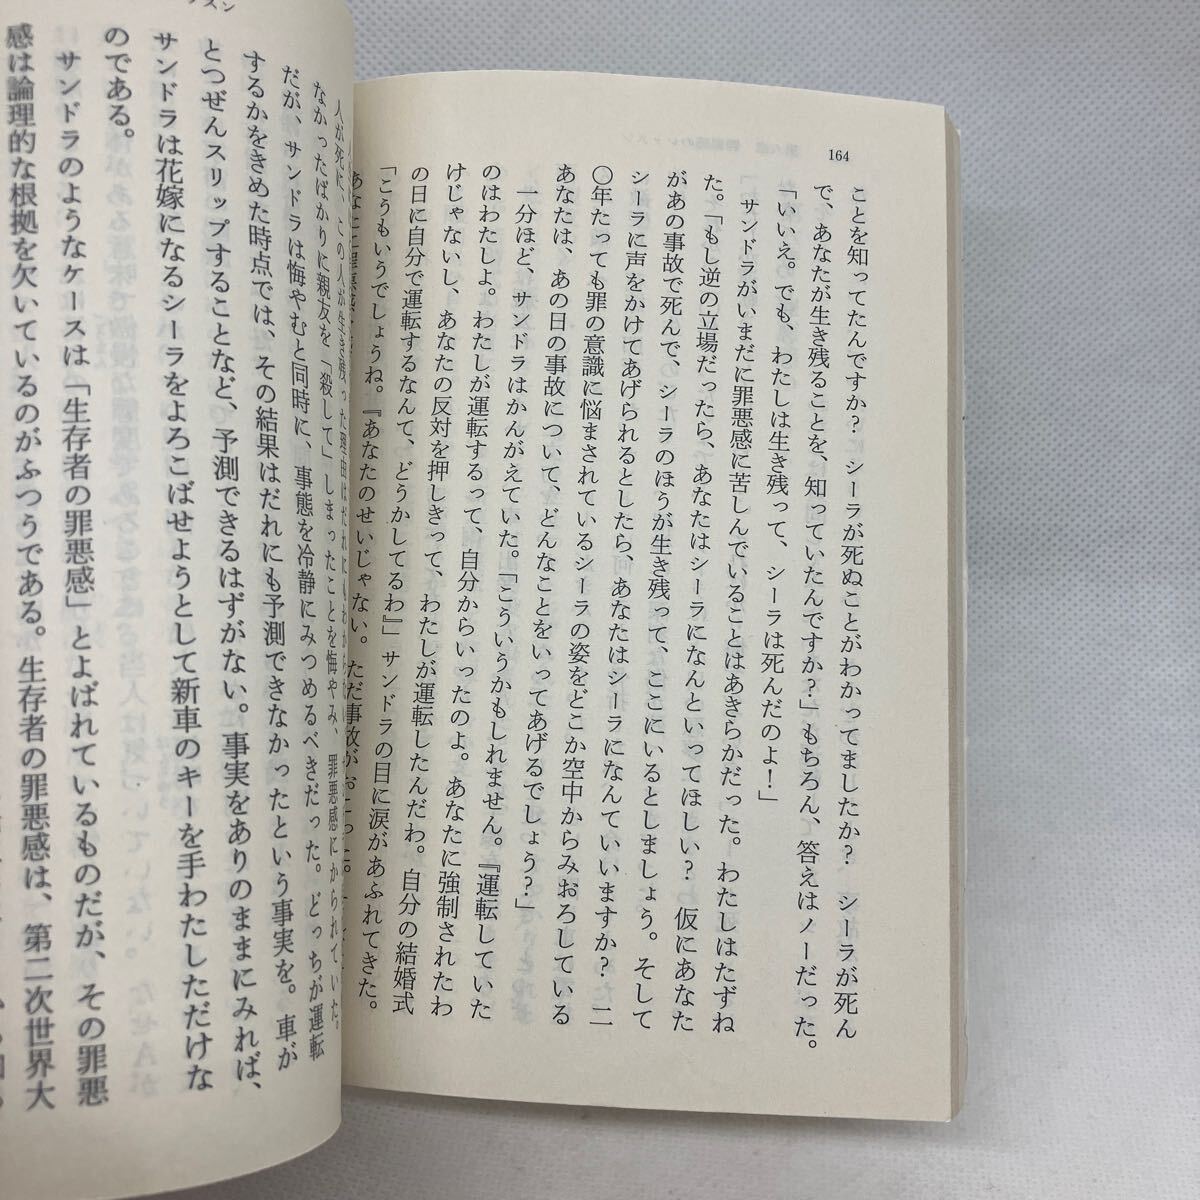 164
ことを知ってたんですか? シーラが死ぬことがわかってましたか? シーラが死ん
で、あなたが生き残ることを、知っていたんですか?」もちろん、答えはノーだった。
「いいえ。でも、わたしは生き残って、シーラは死んだのよ!」
サンドラがいまだに罪悪感に苦しんでいることはあきらかだった。わたしはたずね
た。「もし逆の立場だったら、あなたはシーラになんといってほしい? 仮にあなた
があの事故で死んで、シーラのほうが生き残って、ここにいるとしましょう。そして
シーラに声をかけてあげられるとしたら、あなたはシーラになんていいますか? 二
〇年たっても罪の意識に悩まされているシーラの姿をどこか空中からみおろしている
あなたは、あの日の事故について、どんなことをいってあげるでしょう?」
一分ほど、サンドラはかんがえていた。「こういうかもしれません。『運転していた
のはわたしよ。わたしが運転するって、自分からいったのよ。あなたに強制されたわ
けじゃないし、あなたの反対を押しきって、わたしが運転したんだわ。自分の結婚式
の日に自分で運転するなんて、どうかしてるわ』」サンドラの目に涙があふれてきた。
「こうもいうでしょうね。『あなたのせいじゃない。ただ事故がおこった。
あなたに罪悪感
スン
人が死に、この人が生き残った理由はだれにもわからない。
なかったばかりに親友を「殺して」しまったことを悔やみ、罪悪感にかられていた。
だが、サンドラは悔やむと同時に、事態を冷静にみつめるべきだった。どっちが運転
するかをきめた時点では、その結果はだれにも予測できなかったという事実を。車が
とつぜんスリップすることなど、予測できるはずがない。事実をありのままにみれば、
サンドラは花嫁になるシーラをよろこばせようとして新車のキーを手わたしただけな
のである。
サンドラのようなケースは「生存者の罪悪感」とよばれているものだが、その罪悪
感は論理的な根拠を欠いているのがふつうである。生存者の罪悪感は、第二次世界大